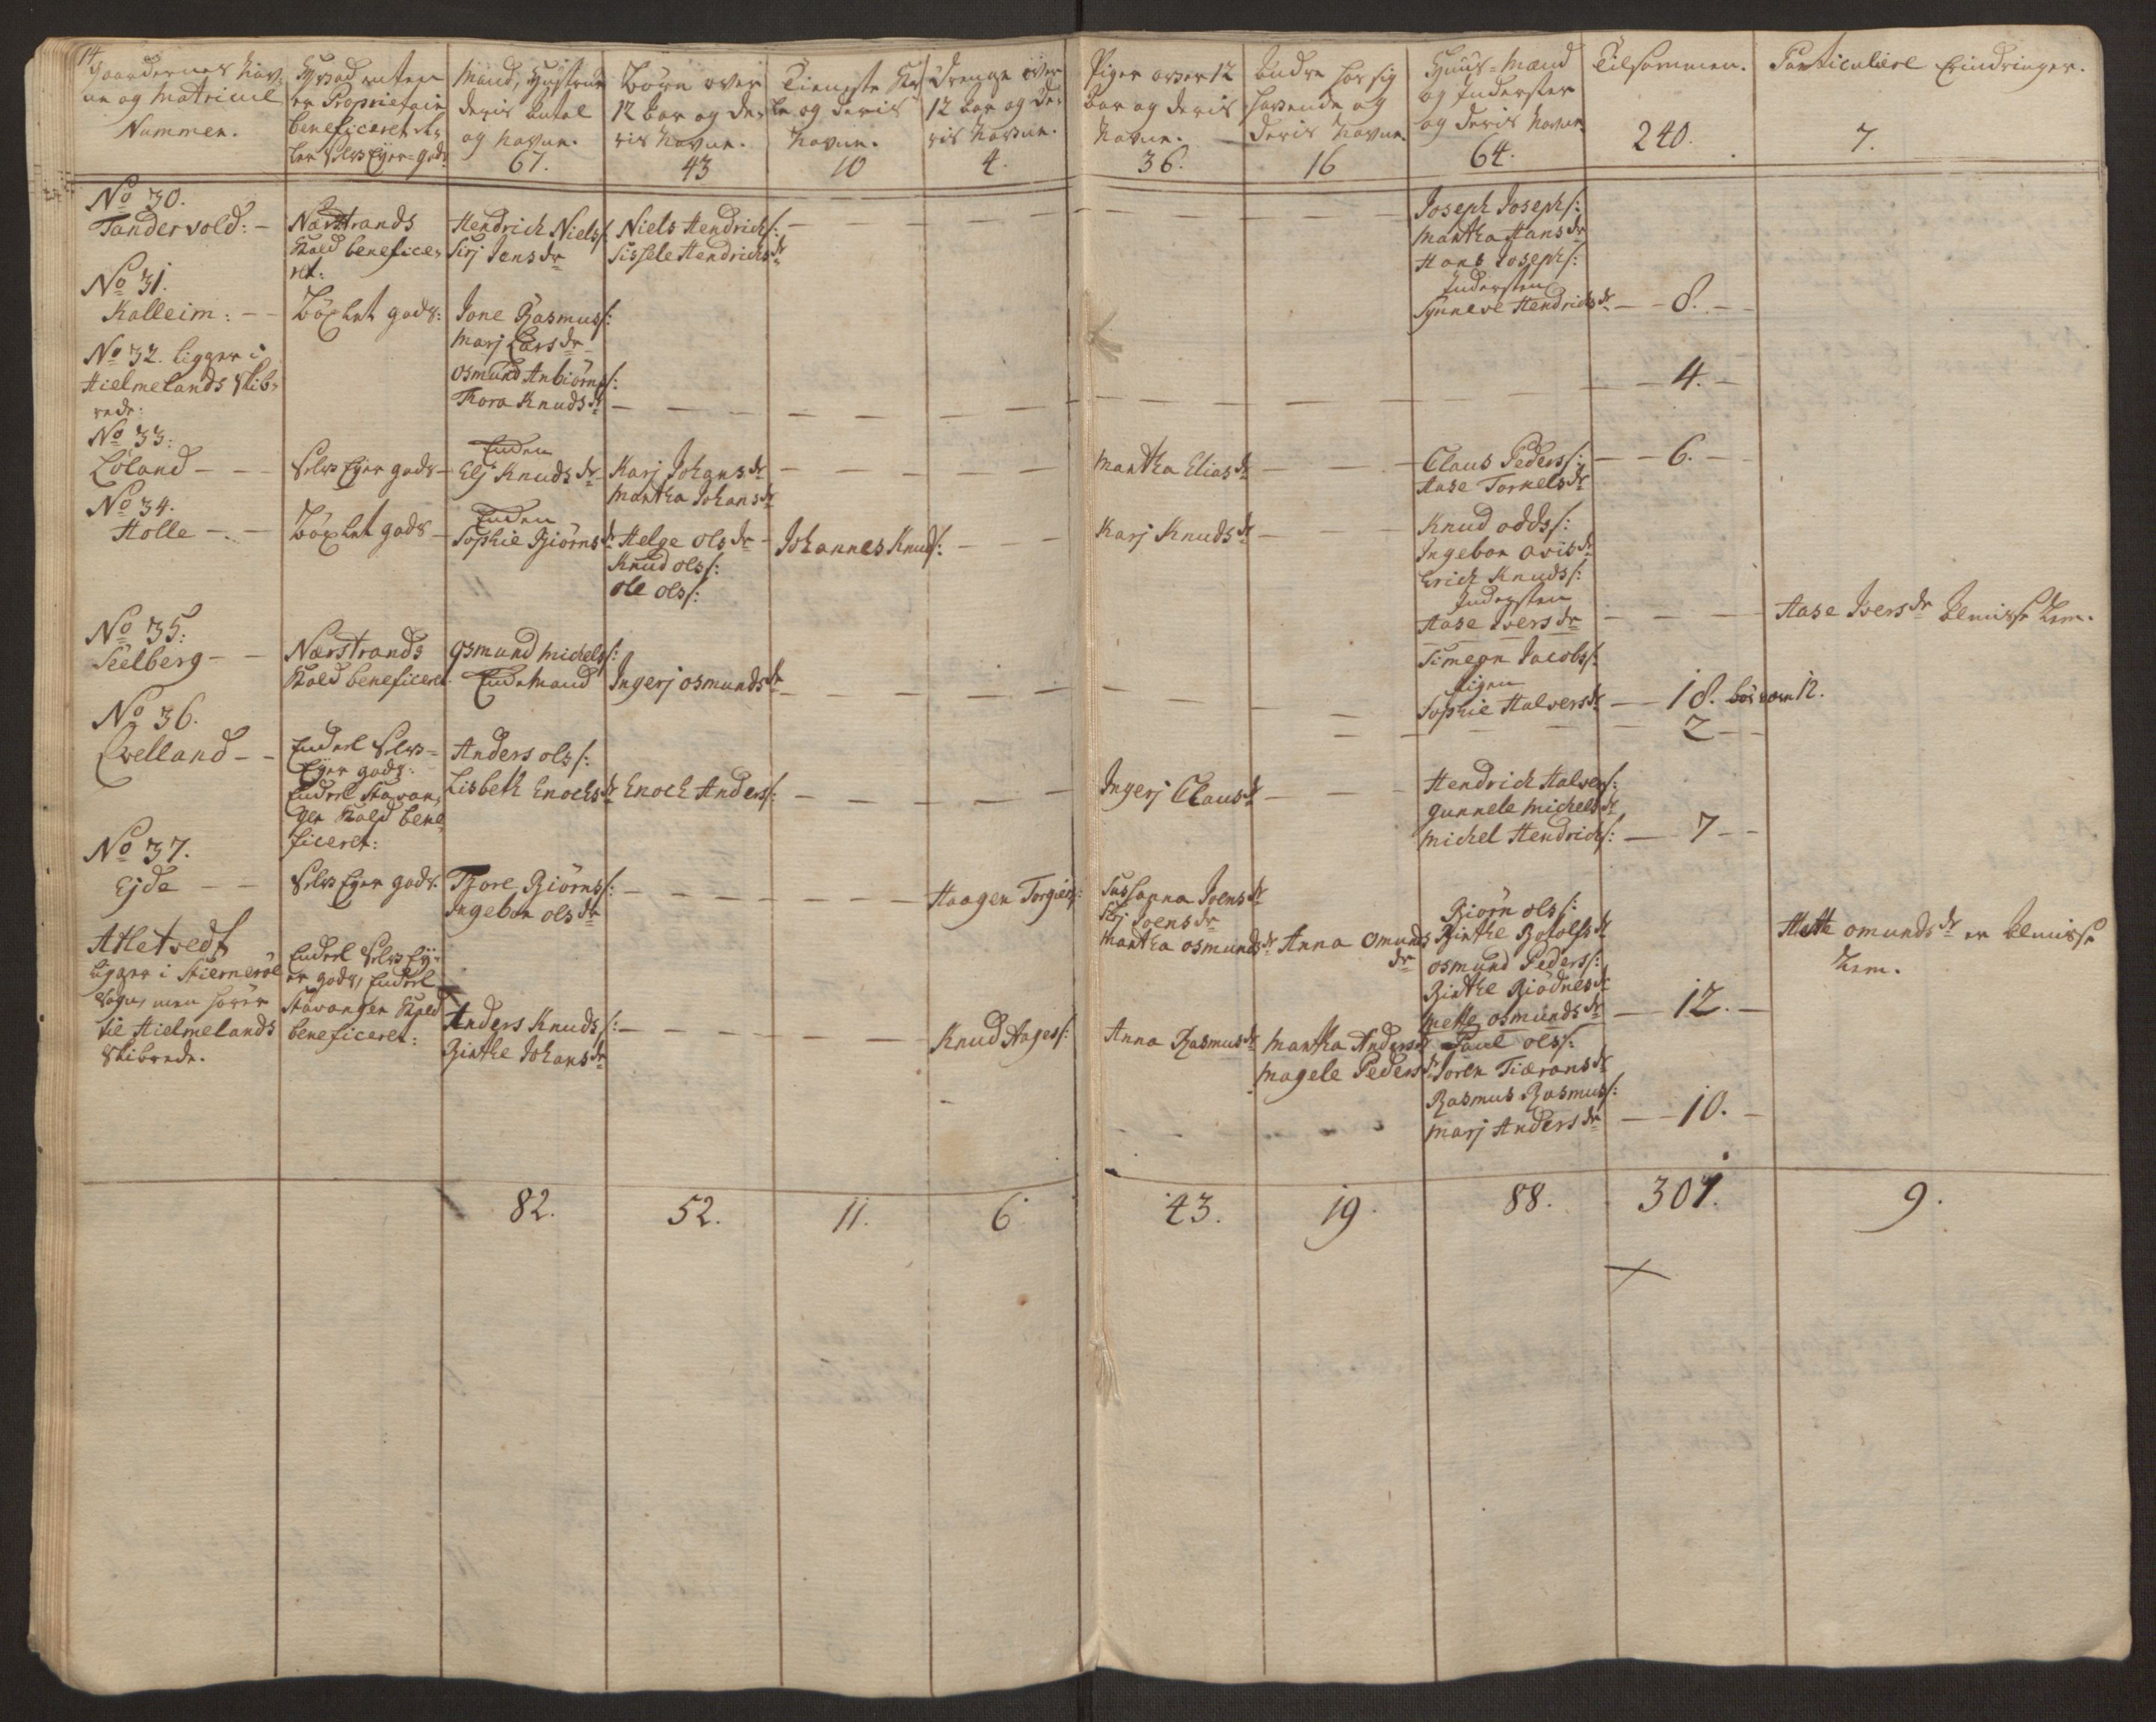 14
Gaardernes Nav-
ne og Matricul
Nummer.
Hvad enten
er Proprietair
beneficeret el-
ler Selv Ejer-gods
Mænd, Hustruer
deris Antal
og Navne.
67.
Börn over
12 Aar og de-
ris Navne.
43
Tieniste Ka
le og deris
Navne.
10
Drenge over
12 Aar og de-
ris Navne.
4.
Piger over 12
Aar og deris
Navne.
36.
Andre hos sig
havende og
deris Navne.
16
Huus-Mænd
og Inderster
og deris Navne
64.
Tilsammen.
240.
Particuliere Erindringer.
7.
No 30.
Tandervold: -
Nærstrands
Kald beneficer-
ret:
Hendrich Niels/:
Sirj Jens dr
Niels Hendrich/:
Sissele Hendrichs dr
Joseph Joseph/:
Martha Hans dr
Hans Joseph/:
Indersten
Synneve Hendrichs dr - - 8. - -
No 31.
Kalleim: - -
Böxlet gods:
Jone Rasmus/:
Marj Lars dr
Osmund Anbiörns/:
Thora Knuds dr
- 4. -
No 32. ligger i
Hielmelands Skib-
rede:
No 33:
Löland - - -
Selv Ejer gods -
Enken
Elj Knuds dr
Karj Johans dr
Martha Johans dr
Martha Elias dr
Claus Peders/: - - 6. - -
Aase Torkels dr
No 34.
Holle - - -
Böxlet gods -
Enken
Sophie Biörns dr
Helge Ols dr -
Knud Ols/:
Ole Ols/:
Johannes Knuds/:
Karj Knuds dr
Knud Odds/:
Ingebor Avis dr
Erich Knuds/:
Indersten
Aase Ivers dr
Simeon Jacobs/:
Pigen
Sophie Halvers dr - - 18. bör være 12.
Aase Ivers dr Almisse Lem.
No 35:
Sælberg - -
Nærstrands
Kald beneficeret
Osmund Michels/:
Enkemand
Ingerj Osmunds dr
2 - -
No 36.
Qvelland - -
Endeel Selv-
Ejer gods:
Endeel Stavan-
ger Kald bene-
ficeret:
Anders Ols/:
Lisbeth Enochs dr
Enoch Anders/:
Ingerj Claus dr
Hendrich Halvers/:
Gunnele Michels dr
Michel Hendrich/: - 7 - -
No 37.
Ejde - -
Selv Ejer gods.
Tore Biörns/:
Ingebor Ols dr
Haagen Torgiers/:
Sussanna Ivens dr
Sirj Joens dr
Martha Osmunds dr
Anna Omunds
dr
Biörn Ols/:
Birthe Botolfs dr
Osmund Peders/:
Birthe Biödnes dr
Mette Osmunds dr - 12. -
Mette Omunds dr er Almisse
Lem.
Atletvedt
ligger i Stierneröe
Sogn, men hörer
til Hielmelands
Skibrede.
Endeel Selv Ej-
er gods, Endeel
Stavanger Kald
beneficeret:
Anders Knuds/:
Birthe Johans dr
Knud Aages/:
Anna Rasmus dr
Martha Anders dr
Magele Peders dr
Poul Ols/:
Soren Tiærans dr
Rasmus Rasmus/:
Marj Anders dr - - 10. -
82.
52.
11.
6
43.
19.
88.
307.
9.